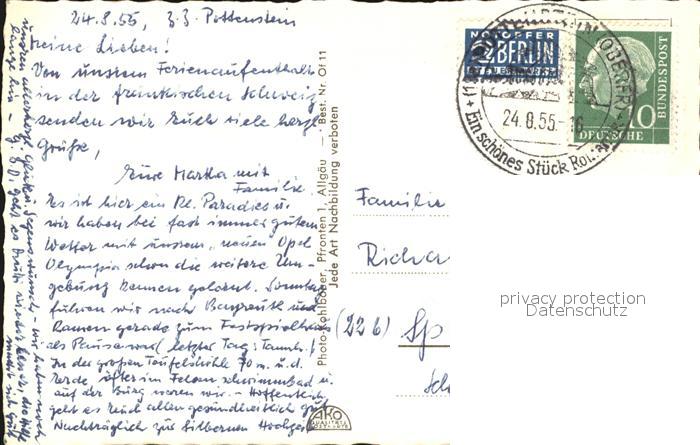 24.8.55, z.Z. Pottenstein
Meine Lieben!
Von unserm Ferienaufenthalt
in der fränkischen Schweiz
senden wir Euch viele herzl.
Grüße,
Eure Martha mit
Familie
Es ist hier ein kl. Paradies u.
wir haben bei fast immer gutem
Wetter mit unserm „neuen" Opel
Olympia schon die weitere Um-
gebung kennen gelernt. Sonntag
fuhren wir nach Bayreuth und
kamen gerade zum Festspielhaus
als Pause war letzter Tag: Tannh.!
In der großen Teufelshöhle 70 m u. d.
Erde, öfter im Felsenschwimmbad u.
auf der Burg waren wir. - Hoffentlich
geht es Euch allen gesundheitlich gut
Nachträglich zur Silbernen Hochzeit
Photo-Kohlbauer, Pfronten 1, Allgäu — Best. Nr. Of 11
Jede Art Nachbildung verboten
AKO
NOTOPFER
2 BERLIN
STEUERMARKE
10
DEUTSCHE
BUNDESPOST
POTTENSTEIN (OBERFR)
24.8.55.-16
Ein schönes Stück
Familie
Richar
(22b) Sp
privacy protection
Datenschutz